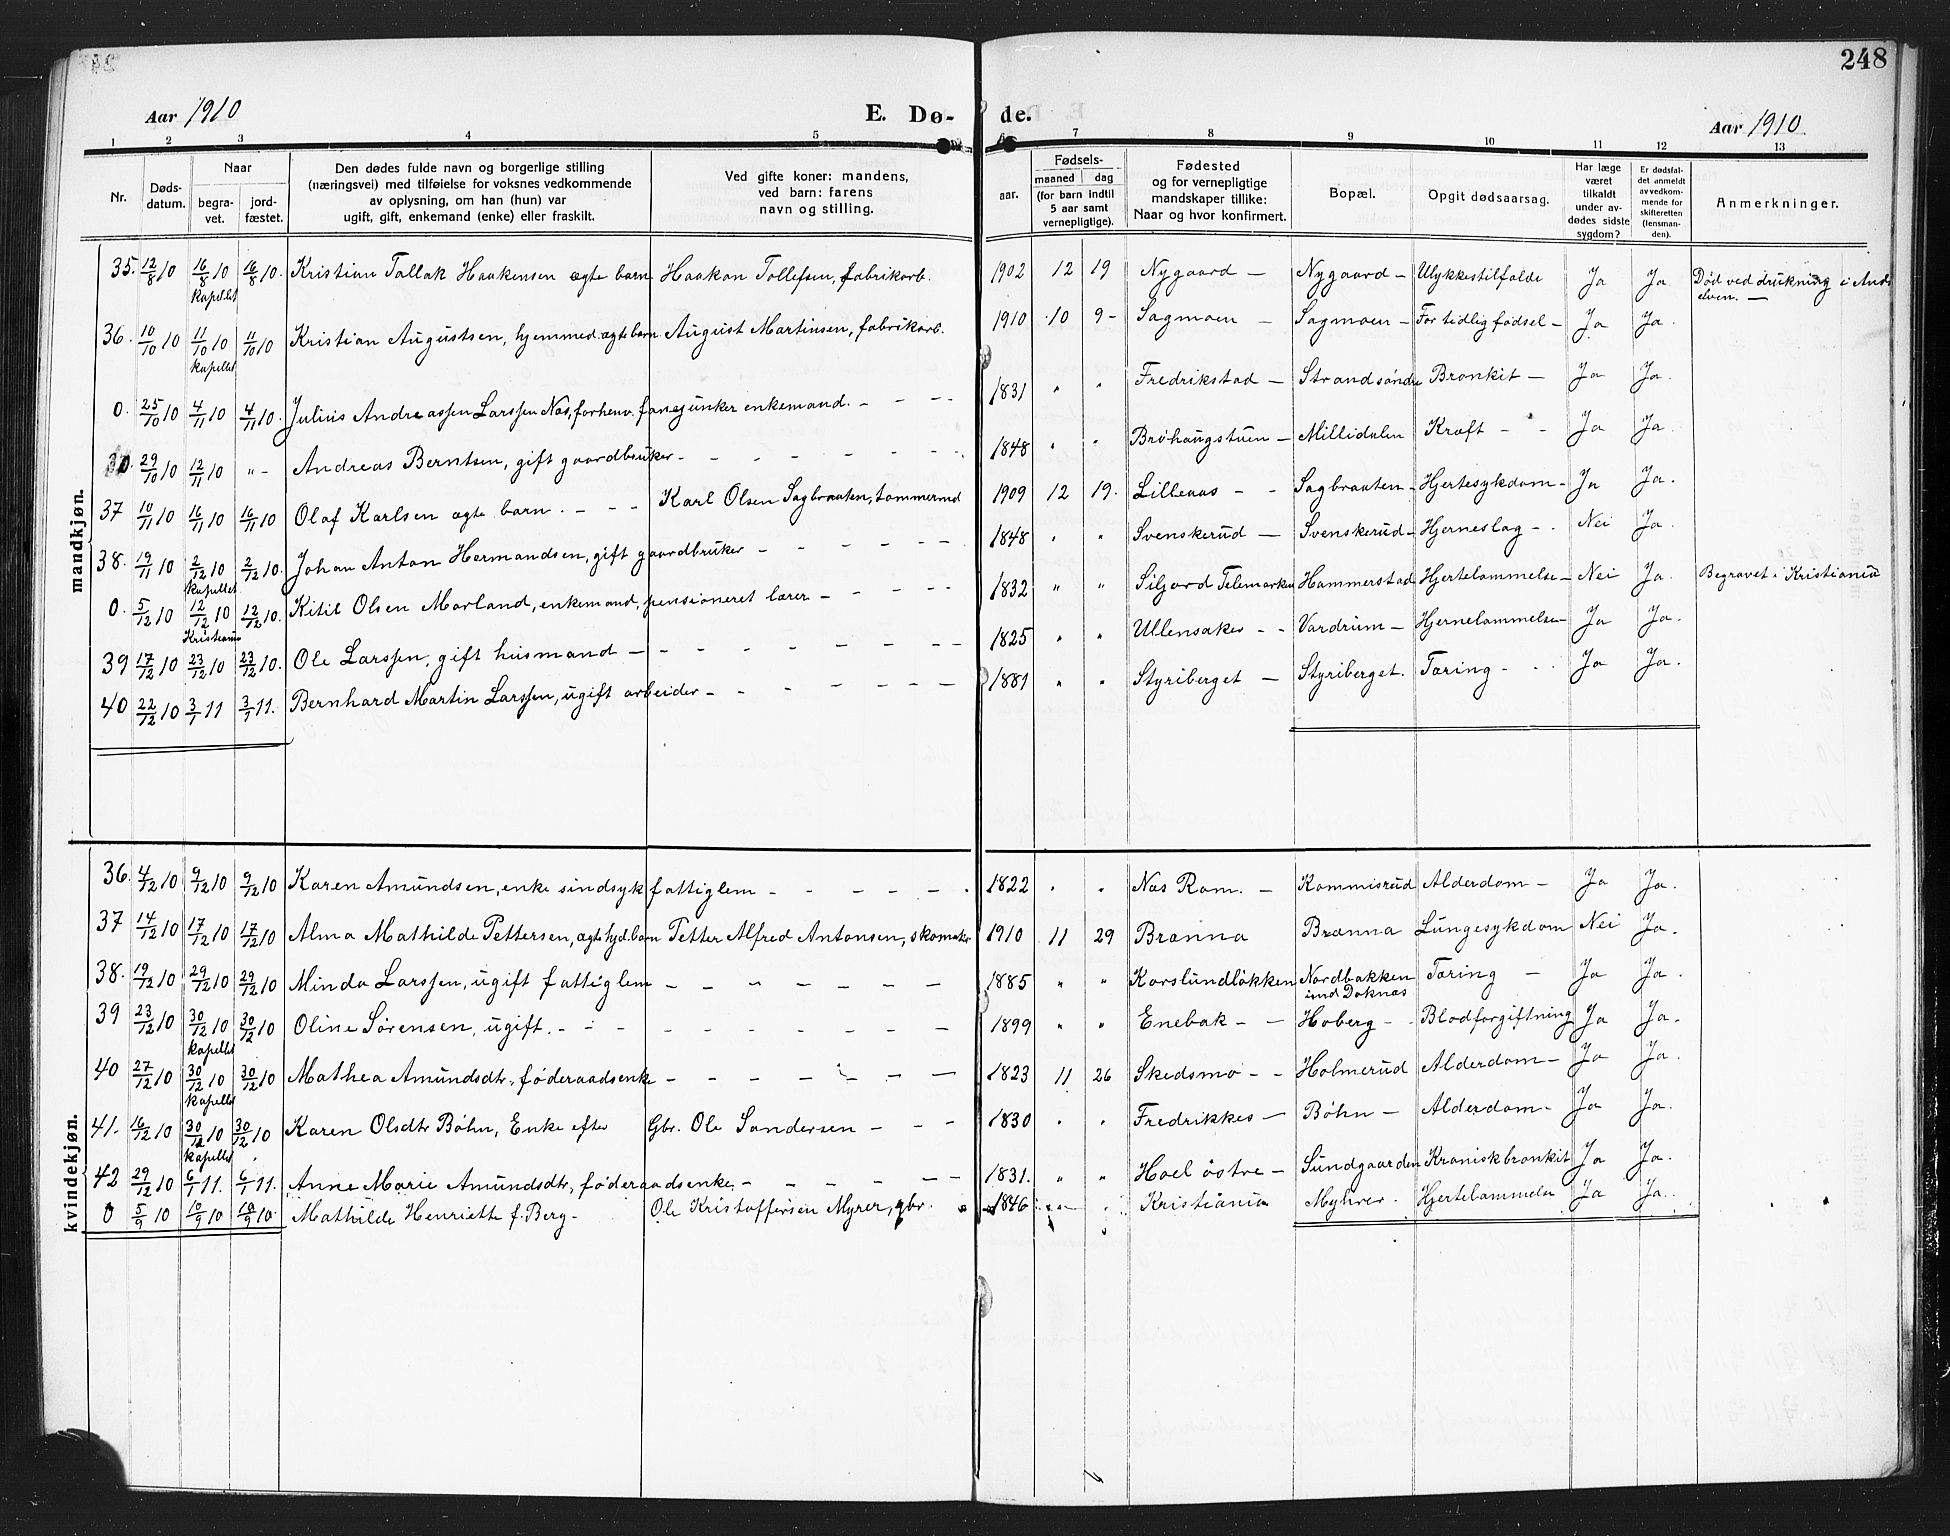 248
Aar 1910
E. Dø-
de.
Aar 1910
1 2 3 4 5 7 8 9 10 11 12 13
Nr.
Døds-
datum.
Naar
begra-
vet.
jord-
fæstet.
Den dødes fulde navn og borgerlige stilling
(næringsvei) med tilføielse for voksnes vedkommende
av oplysning, om han (hun) var
ugift, gift, enkemand (enke) eller fraskilt.
Ved gifte koner: mandens,
ved barn: farens
navn og stilling.
Fødsels-
aar.
maaned
dag
(for barn indtil
5 aar samt
vernepligtige).
Fødested
og for vernepligtige
mandskaper tillike:
Naar og hvor konfirmert.
Bopæl.
Opgit dødsaarsag.
Har læge
været
tilkaldt
under av-
dødes sidste
sygdom?
Er dødsfal-
det anmeldt
av vedkom-
mende for
skifteretten
(lensman-
den).
Anmerkninger.
mandkjøn.
35. 12/8 10 16/8 10 kapellet 16/8 10. Kristian Tallak Haakensen ægte barn Haakon Tollefsen, fabrikarb. 1902 12 19 Nygaard — Nygaard — Ulykkestilfælde Ja Ja Død ved drukning i
elven. —
36. 10/10 10 11/10 10 kapellet 11/10 10 Kristian Augustsen, hjemmed. ægte barn August Martinsen, fabrikarb. 1910 10 9 - Sagmoen — Sagmoen — For tidlig fødsel — Ja Ja.
0. 25/10 10 4/11 10 4/11 10. Julius Andreassen Larssen Næs, forhenv. fanejunker enkemand. - - - 1831 " " Fredrikstad — Strand søndre Bronkit — Ja Ja.
29/10 10 12/11 10 " - Andreas Berntsen, gift gaardbruker - - - - 1848 " " Brøhaugstuen — Millidalen Kræft - - Ja Ja.
37 10/11 10 16/11 10 16/11 10 Olaf Karlsen ægte barn. - - - Karl Olsen Sagbraaten, tømmermd 1909 12 19. Lilleaas - - Sagbraaten - Hjertesykdom - Ja Ja.
38. 19/11 10 2/12 10 kapellet 2/12 10. Johan Anton Hermandsen, gift gaardbruker - - - - 1848 " " Svenskerud — Svenskerud - Hjerneslag - - Nei Ja.
0. 5/12 10 12/12 10 Kristiania 12/12 10. Kitil Olsen Morland, enkemand, pensioneret lærer - - - - 1832 " " Siljord Telemarken Hammerstad Hjertelammelse - Nei Ja. Begravet i Kristiania
39 17/12 10 23/12 10 23/12 10. Ole Larssen, gift husmand - - - - 1825 " " Ullensaker - - Vardrum — Hjernelammelse - Ja Ja.
40 22/12 10 3/1 11 3/1 11. Bernhard Martin Larssen, ugift arbeider - - - - 1881 " " Styriberget — Styriberget. Tæring - - Ja Ja.
kvindekjøn.
36. 4/12 10 9/12 10 9/12 10 Karen Amundsen, enke sindsyk fattiglem - - - - 1822 " " Næs Rom. — Kommisrud Alderdom — Ja Ja.
37 14/12 10 17/12 10 17/12 10 Alma Mathilde Pettersen, ægte hjd. barn Petter Alfred Antonsen, skomaker 1910 11 29 Brænna Brænna Lungesykdom Nei Ja.
38. 19/12 10 29/12 10 29/12 10 Minda Larssen, ugift fattiglem - - - - 1885 " " Korslundløkken Nordbakken
und Doknæs Tæring — Ja Ja.
39 23/12 10 30/12 10 kapellet 30/12 10 Oline Sørensen, ugift. - - - - 1899 " " Enebak - — Hoberg - - Blodforgiftning Ja Ja.
40 27/12 10 30/12 10 kapellet 30/12 10 Mathea Amundsdtr, føderaadsenke - - - - 1823 11 26 Skedsmo - - Holmerud Alderdom — Ja Ja.
41. 16/12 10 30/12 10 kapellet 30/12 10 Karen Olsdtr Bøhn, Enke efter Gbr. Ole Sandersen - - - 1830 " " Fredrikkes — Bøhn — Alderdom - Ja Ja.
42 29/12 10 6/1 11. 6/1 11. Anne Marie Amundsdtr, føderaadsenke - - - - 1831. " " Hoel østre — Sundgaarden Kroniskbronkit Ja Ja.
0 5/9 10 10/9 10 10/9 10. Mathilde Henriette f. Berg - Ole Kristoffersen Myrer, gbr. 1846 - - Kristiania Myhrer. Hjertelammelse Ja Ja.